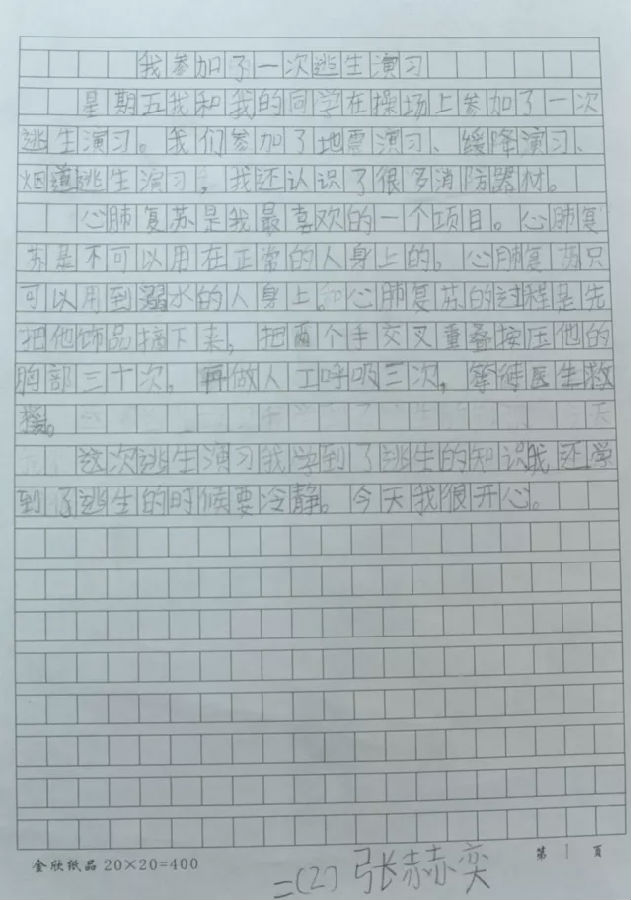 我参加了一次逃生演习
星期五我和我的同学在操场上参加了一次
逃生演习。我们参加了地震演习、缓降演习、
烟道逃生演习，我还认识了很多消防器材。
心肺复苏是我最喜欢的一个项目。心肺复
苏是不可以用在正常的人身上的。心肺复苏只
可以用到溺水的人身上。心肺复苏的过程是先
把他饰品摘下来，把两个手交叉重叠按压他的
胸部三十次，再做人工呼吸三次，等待医生救
援。
这次逃生演习我学到了逃生的知识我还学
到了逃生的时候要冷静。今天我很开心。
金欣纸品 20×20=400
第1页
二(2) 张赫奕